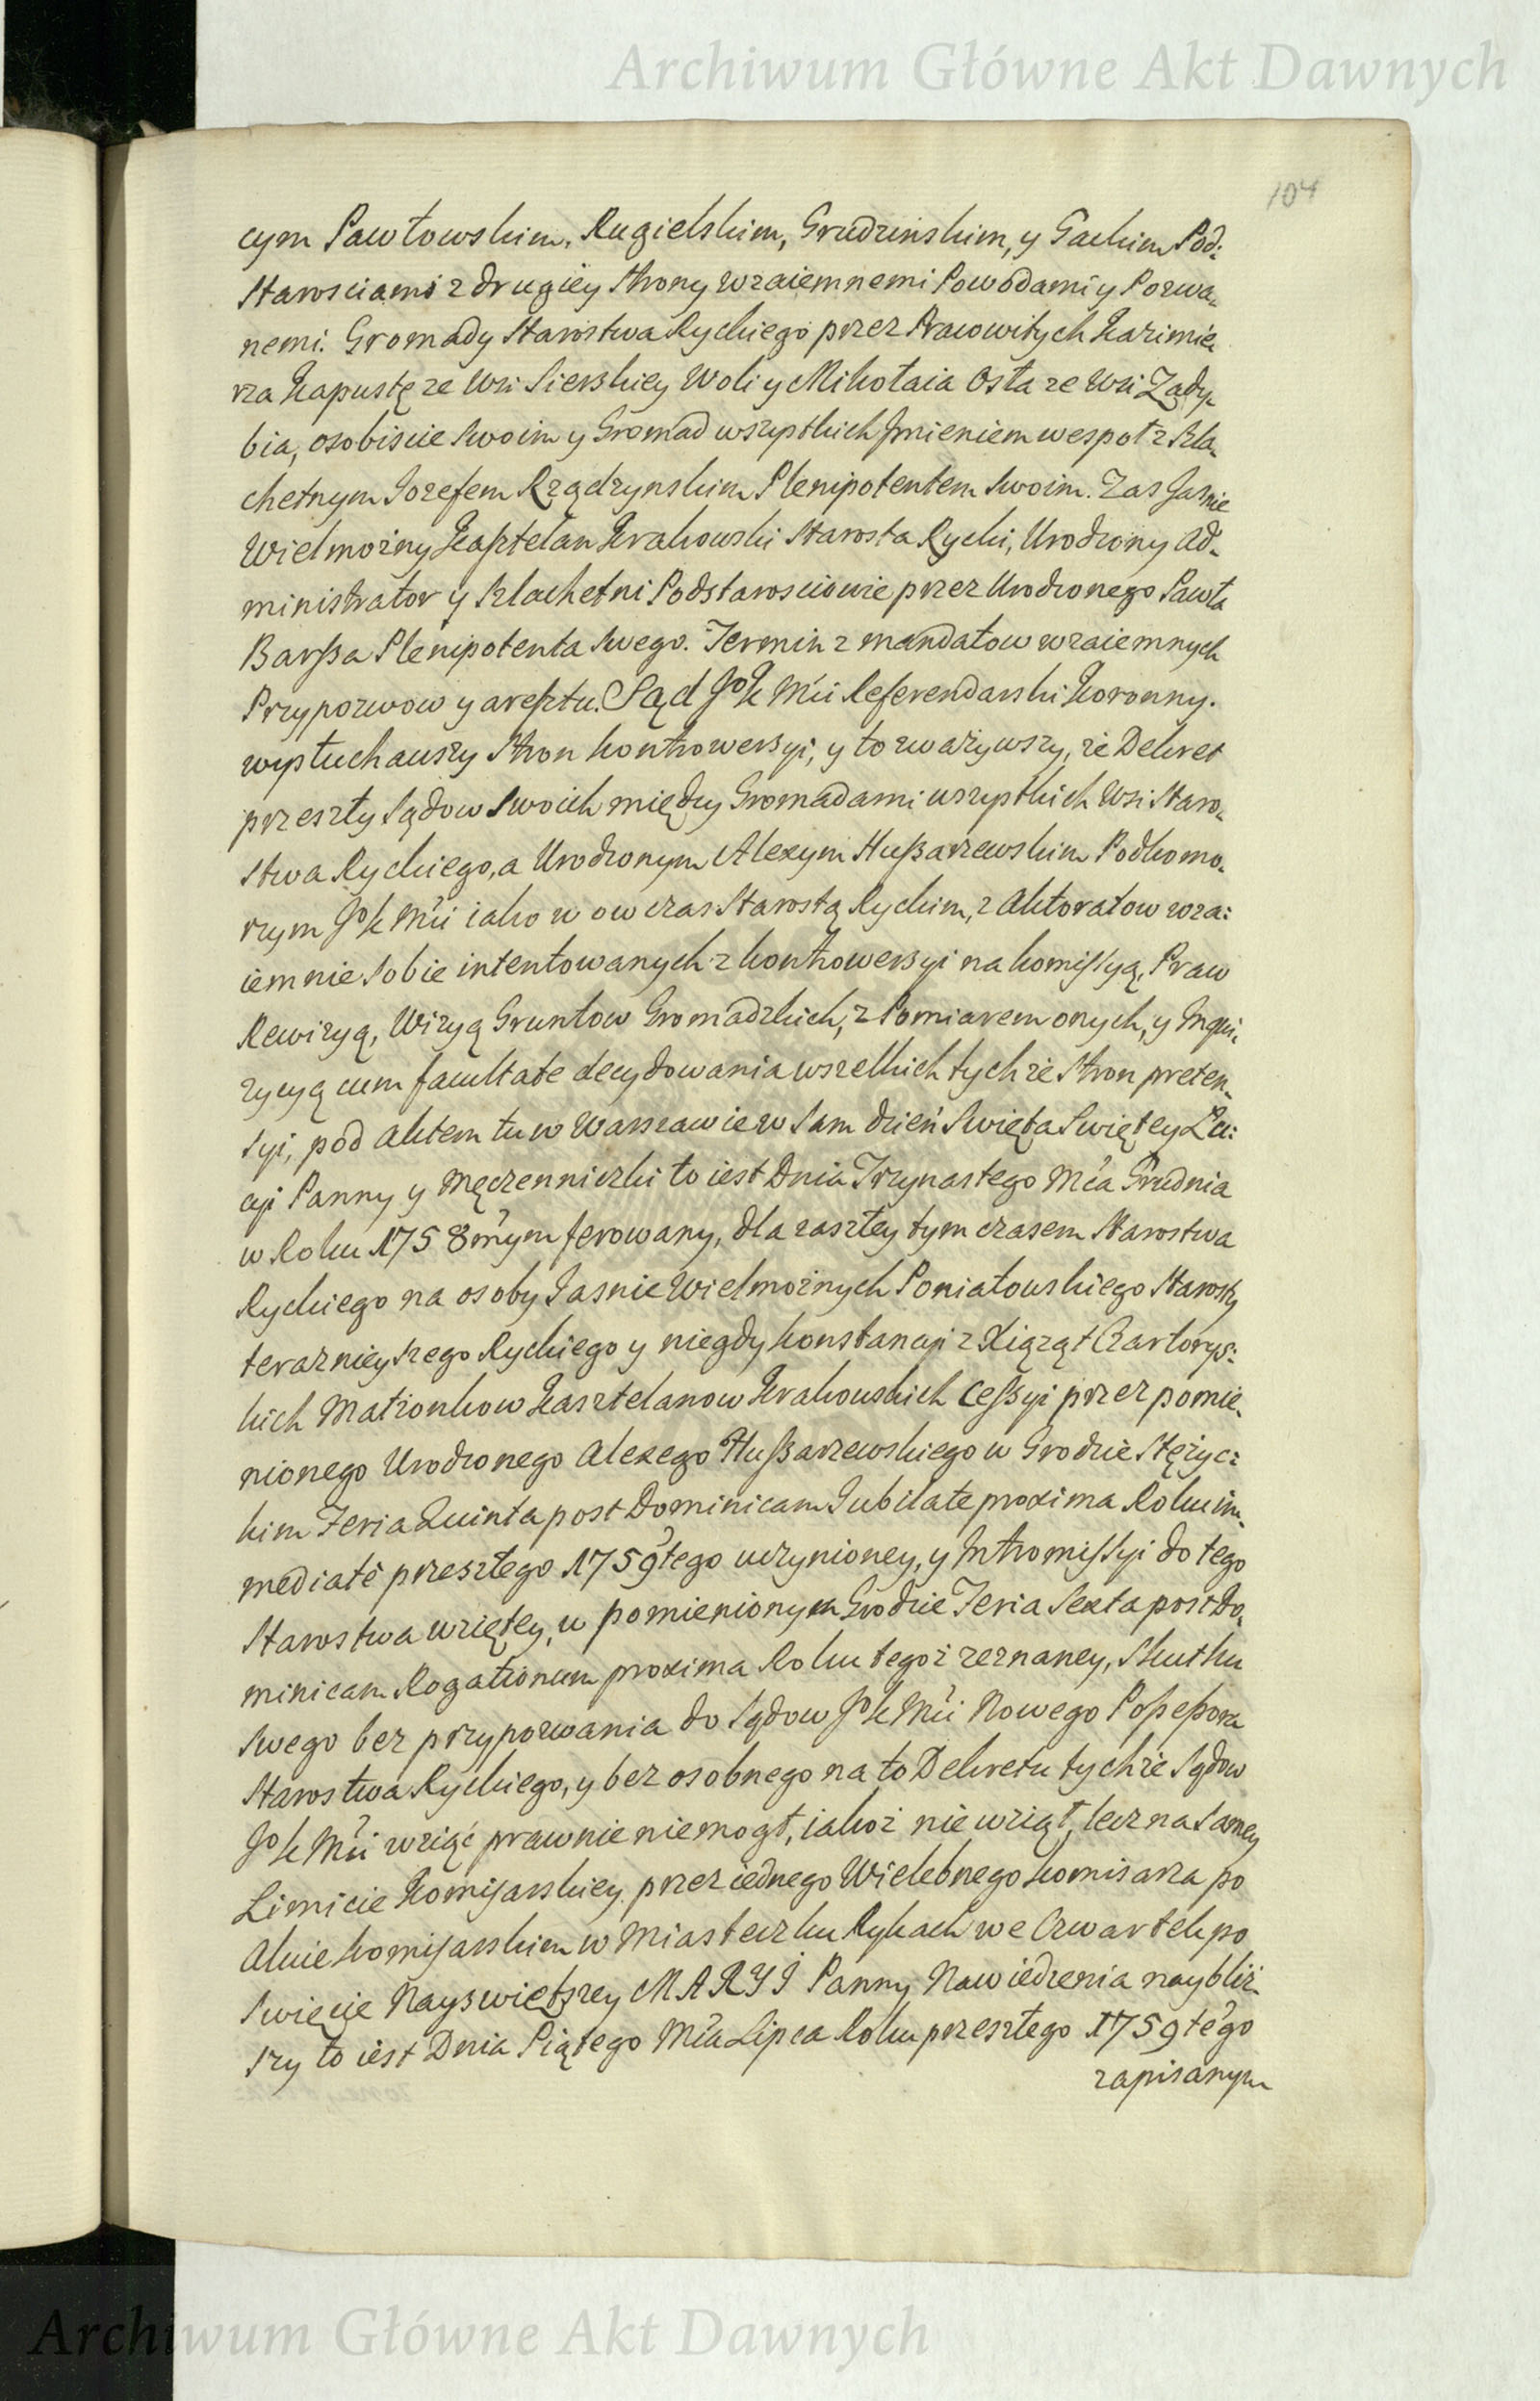 Archiwum Główne Akt Dawnych
104
cym Pawłowskim, Rugielskim, Grudzinskim, y Gackim Pod:
Starosciami z drugiey strony wzaiemnemi Powodami y Pozwa„
nemi. Gromady Starostwa Ryckiego przez Pracowitych Kazimie„
rza Kapustę ze Wsi Sierskiey Woli y Mikołaia Osła ze Wsi Zady„
bia, osobiscie Swoim y Gromad wszystkich Jmieniem wespoł z Szla„
chetnym Jozefem Rządzynskim Plenipotentem Swoim. Zas Jasnie
Wielmożny Kasztelan Krakowski Starosta Rycki, Urodzony Ad„
ministrator y Szlachetni Podstarosciowie przez Urodzonego Pawła
Barßa Plenipotenta Swego. Termin z mandatow wzaiemnych
Przypozwow y aresztu. Sąd JoK Mći Referendarski Koronny.
wysłuchawszy Stron kontrowersyi, y to zwazywszy, że Dekret
przeszły Sądow Swoich między Gromadami wszystkich Wsi Staro„
stwa Ryckiego, a Urodzonym Alexym Hußarzewskim Podkomo„
rzym JoK Mći iako w ow czas Starostą Ryckim, z Aktoratow wza:
iemnie Sobie intentowanych z kontrowersyi na komissyą, Praw
Rewizyą, Wizyą Gruntow Gromadzkich, z Pomiarem onych, y Inqui„
zycyą cum facultate decydowania wszelkich tychże Stron preten„
syi, pod Aktem tu w Warszawie w Sam dzień Swięta Swiętey Łu:
cyi Panny y Męczenniczki to iest Dnia Trzynastego Mća Grudnia
w Roku 1758mym ferowany, dla zaszłey tym czasem Starostwa
Ryckiego na osoby Jasnie Wielmożnych Poniatowskiego Starosty
teraznieyszego Ryckiego y niegdy Konstancyi z Xiążąt Czartorys:
kich Małżonkow Kasztelanow Krakowskich Ceßyi przez pomie„
nionego Urodzonego Alexego Hußarzewskiego w Grodzie Stężyc:
kim Feria Quinta post Dominicam Jubilate proxima Roku im„
mediatè przeszłego 1759tego uczynioney, y Intromissyi do tego
Starostwa wziętey, w pomienionym Grodzie Feria Sexta post Do„
minicam Rogationum proxima Roku tegoż zeznaney, Skutku
Swego bez przypozwania do Sądow JoK Mći Nowego Poßeßora
Starostwa Ryckiego, y bez osobnego na to Dekretu tychże Sądow
JoK Mći wziąć prawnie niemogł, iakoż nie wziął, lecz na Samey
Limicie Komisarskiey przez iednego Wielebnego Komisarza po
Akcie Komisarskim w Miasteczku Rykach we Czwartek po
Swięcie Nayswiętszey MARYI Panny Nawiedzenia nayblíż„
szy to iest Dnia Piątego Mća Lipca Roku przeszłego 1759tego
zapisanym
Archiwum Główne Akt Dawnych